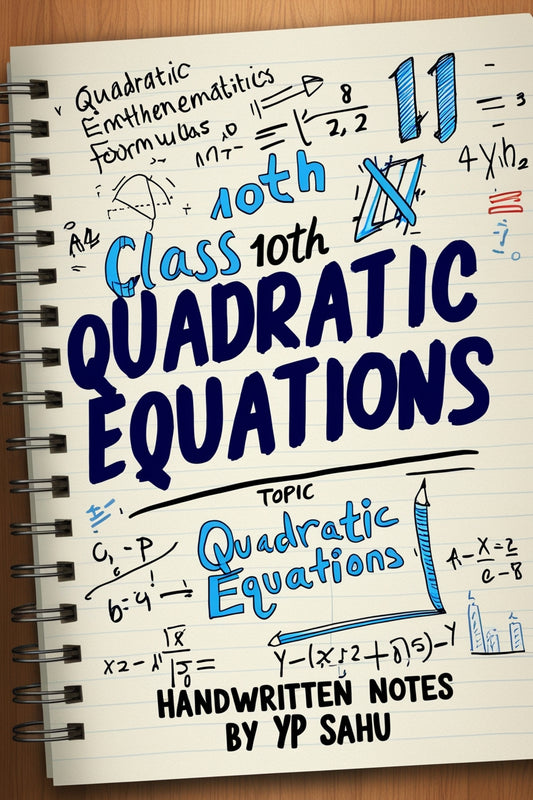 Quadratiic
Emthhenematitics
foormwlas
8
2, 2
= 3
10th
A4
Class 10th
QUADRATIC
EQUATIONS
TOPIC
Quadratic
Equations
b=
HANDWRITTEN NOTES
BY YP SAHU